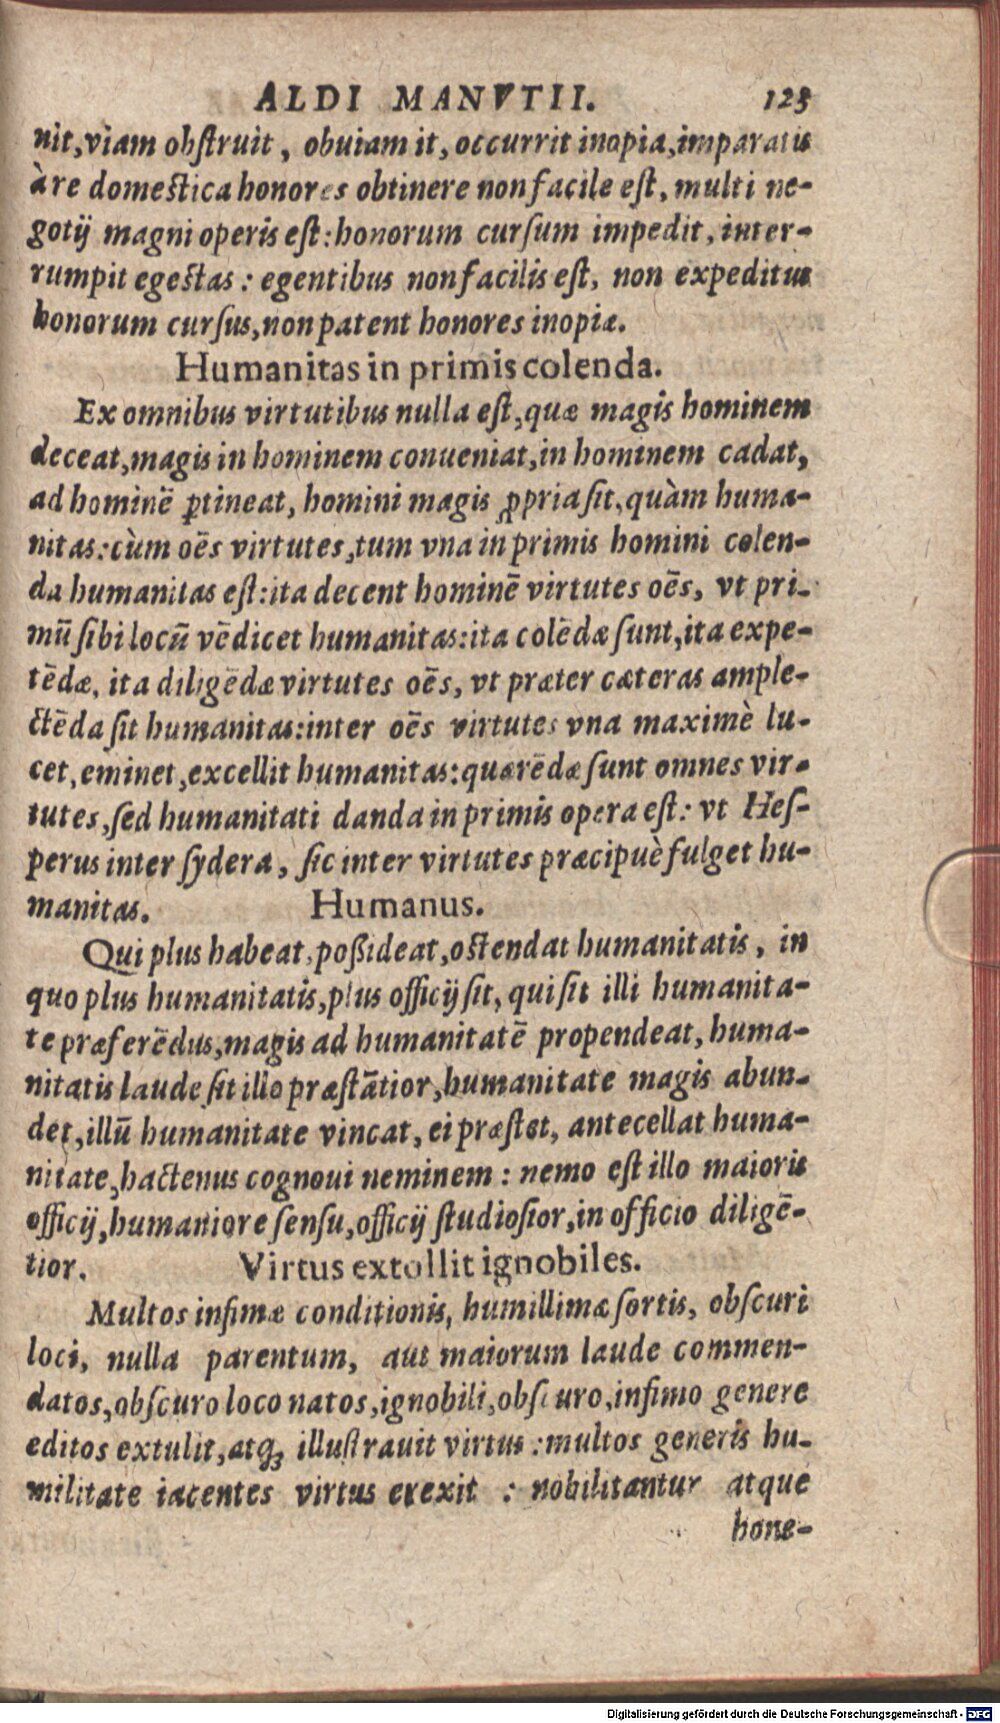 ALDI MANVTII. 123
nit, viam obſtruit, obuiam it, occurrit inopia, imparatis
à re domeſtica honores obtinere non facile eſt, multi ne-
gotij magni operis eſt: honorum curſum impedit, inter-
rumpit egeſtas: egentibus non facilis eſt, non expeditus
honorum curſus, non patent honores inopiæ.
Humanitas in primis colenda.
Ex omnibus virtutibus nulla eſt, quæ magis hominem
deceat, magis in hominem conueniat, in hominem cadat,
ad hominē ꝑtineat, homini magis ꝓpria ſit, quàm huma-
nitas: cùm oēs virtutes, tum vna in primis homini colen-
da humanitas eſt: ita decent hominē virtutes oēs, vt pri-
mū ſibi locū vēdicet humanitas: ita colēdæ ſunt, ita expe-
tēdæ, ita diligēdæ virtutes oēs, vt præter cæteras ample-
ctēda ſit humanitas: inter oēs virtutes vna maximè lu-
cet, eminet, excellit humanitas: quærēdæ ſunt omnes vir-
tutes, ſed humanitati danda in primis opera eſt: vt Heſ-
perus inter ſydera, ſic inter virtutes præcipuè fulget hu-
manitas. Humanus.
Qui plus habeat, poßideat, oſtendat humanitatis, in
quo plus humanitatis, plus officij ſit, qui ſit illi humanita-
te præferēdus, magis ad humanitatē propendeat, huma-
nitatis laude ſit illo præſtātior, humanitate magis abun-
det, illū humanitate vincat, ei præſtet, antecellat huma-
nitate, hactenus cognoui neminem: nemo eſt illo maioris
officij, humaniore ſenſu, officij ſtudioſior, in officio diligē-
tior. Virtus extollit ignobiles.
Multos infimæ conditionis, humillimæ ſortis, obſcuri
loci, nulla parentum, aut maiorum laude commen-
datos, obſcuro loco natos, ignobili, obſcuro, infimo genere
editos extulit, atq; illuſtrauit virtus: multos generis hu-
militate iacentes virtus erexit: nobilitantur atque
hone-
Digitalisierung gefördert durch die Deutsche Forschungsgemeinschaft - DFG